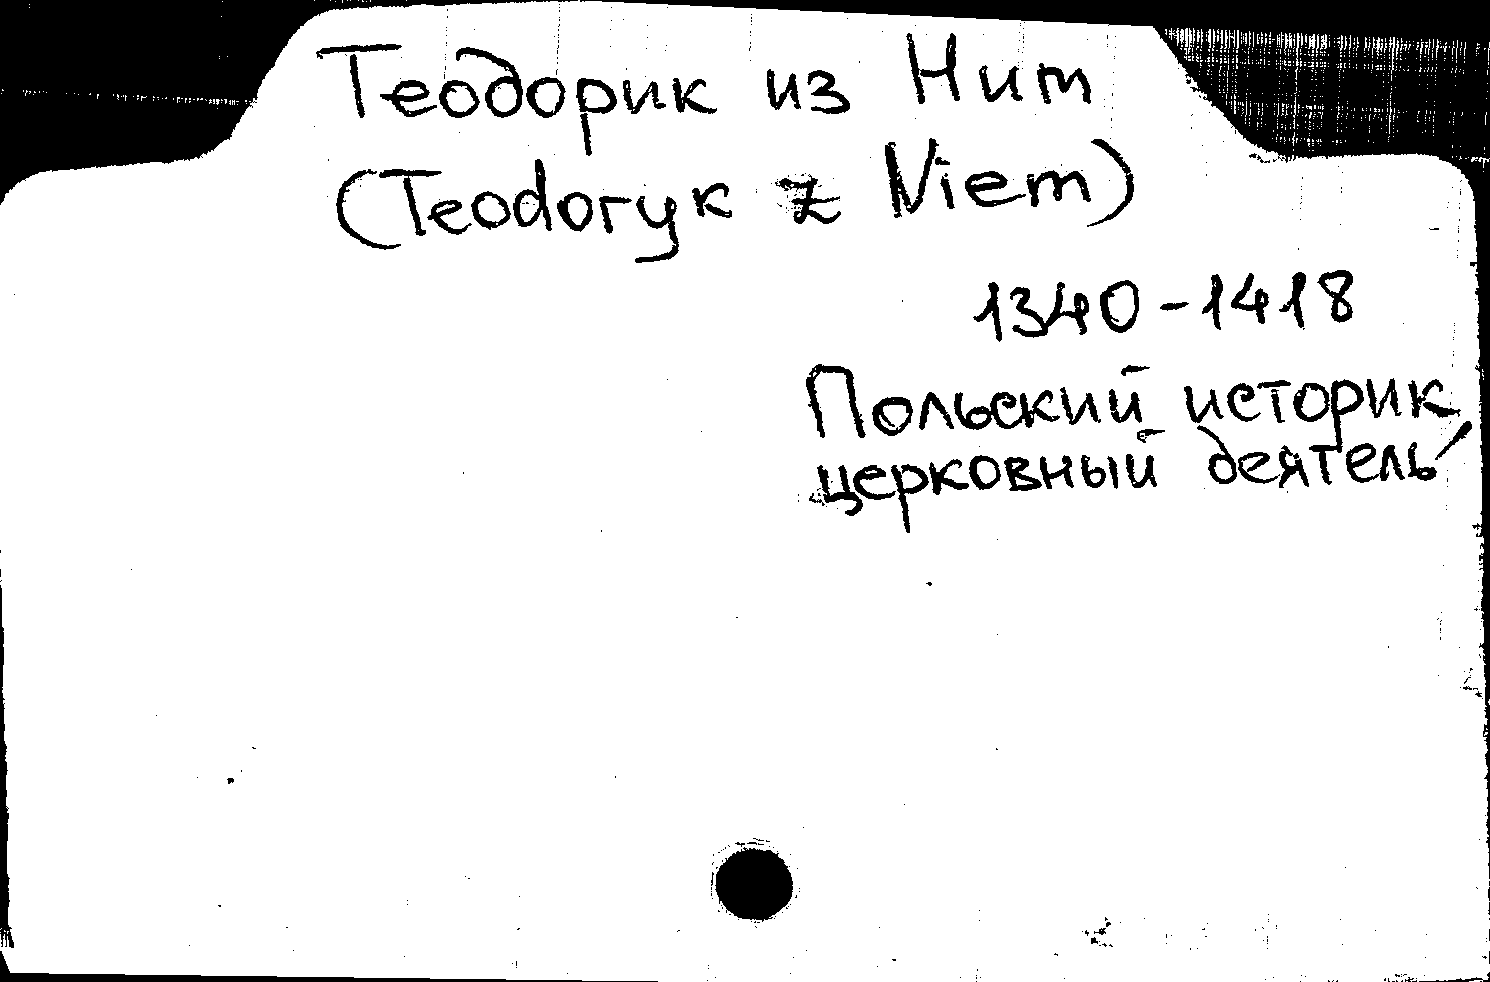 Теодорик из Ним
(Teodoryk z Niem)
1340-1418
Польский историк,
церковный деятель